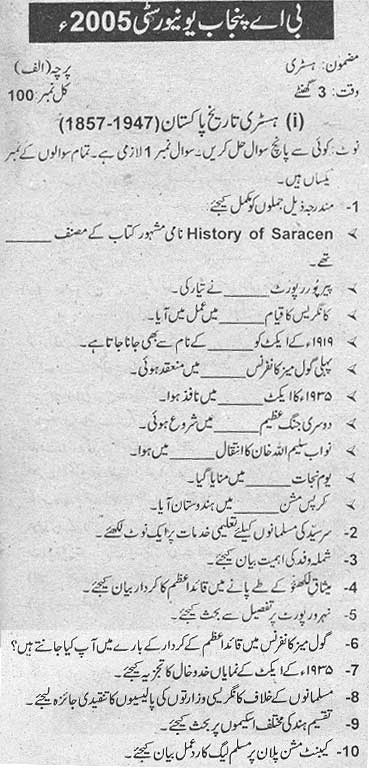 بی اے پنجاب یونیورسٹی 2005ء
مضمون: ہسٹری
پرچہ (الف)
وقت: 3 گھنٹے
کل نمبر: 100
(i) ہسٹری تاریخ پاکستان (1857-1947)
نوٹ: کوئی سے پانچ سوال حل کریں۔ سوال نمبر 1 لازمی ہے۔ تمام سوالوں کے نمبر
یکساں ہیں۔
1- مندرجہ ذیل جملوں کو مکمل کیجئے
History of Saracen نامی مشہور کتاب کے مصنف ______
تھے۔
پیرپور رپورٹ ______ نے تیار کی۔
کانگریس کا قیام ______ میں عمل میں آیا۔
۱۹۱۹ء کے ایکٹ کو ______ کے نام سے بھی جانا جاتا ہے۔
پہلی گول میز کانفرنس ______ میں منعقد ہوئی۔
۱۹۳۵ء کا ایکٹ ______ میں نافذ ہوا۔
دوسری جنگ عظیم ______ میں شروع ہوئی۔
نواب سلیم اللہ خان کا انتقال ______ میں ہوا۔
یوم نجات ______ میں منایا گیا۔
کرپس مشن ______ میں ہندوستان آیا۔
2- سرسید کی مسلمانوں کیلئے تعلیمی خدمات پر ایک نوٹ لکھئے۔
3- شملہ وفد کی اہمیت بیان کیجئے۔
4- میثاق لکھنؤ کے طے پانے میں قائداعظم کا کردار بیان کیجئے۔
5- نہرو رپورٹ پر تفصیل سے بحث کیجئے۔
6- گول میز کانفرنس میں قائداعظم کے کردار کے بارے میں آپ کیا جانتے ہیں؟
7- ۱۹۳۵ء کے ایکٹ کے نمایاں خدوخال کا تجزیہ کیجئے۔
8- مسلمانوں کے خلاف کانگریسی وزارتوں کی پالیسیوں کا تنقیدی جائزہ لیجئے۔
9- تقسیم ہند کی مختلف اسکیموں پر بحث کیجئے۔
10- کیبنٹ مشن پلان پر مسلم لیگ کا ردعمل بیان کیجئے۔